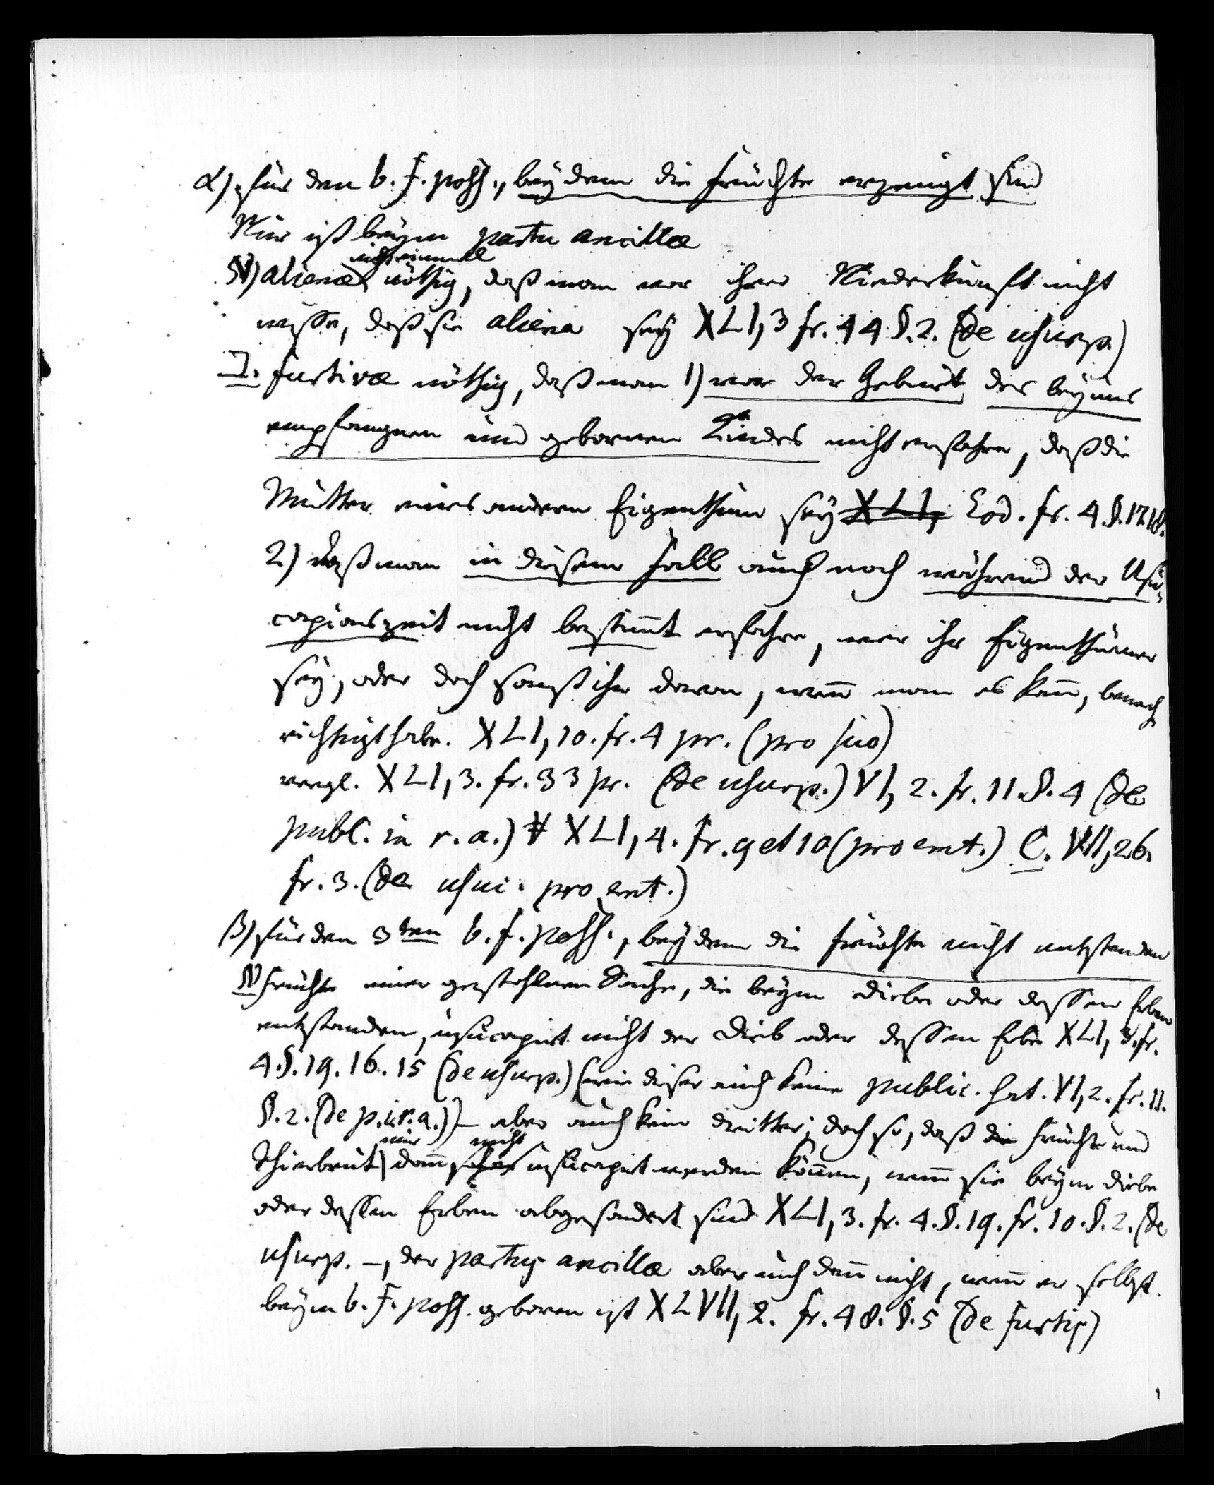 α) für den b. f. poss., bey dem die Früchte erzeugt sind
Nur ist beym partu ancillae
א) alienae nicht einmal nöthig, daß man vor ihrer Niederkunft nicht
wisse, daß sie aliena sey XLI, 3 fr. 44 §. 2. (de usurp.)
ב. furtivae nöthig, daß man 1) vor der Geburt des bey uns
empfangnen und gebornen Kindes nicht erfahre, daß die
Mutter eines andern Eigenthum sey XLI, Eod. fr. 4. §. 17. 18.
2) daß man in diesem Fall auch noch während der Usu-
capionszeit nicht bestimmt erfahre, wer ihr Eigenthümer
sey, oder doch sonst ihn davon, wenn man es kann, benach
richtigt habe. XLI, 10. fr. 4 pr. (pro suo)
vergl. XLI, 3. fr. 33 pr. (de usurp.) VI, 2. fr. 11. §. 4 (de
publ. in r. a.) XLI, 4. fr. 9 et 10 (pro emt.) C. VII, 26.
fr. 3. (de usuc. pro emt.)
β) für den 3ten b. f. poss., bey dem die Früchte nicht entstanden
א) Früchte einer gestohlnen Sache, die beym Diebe oder dessen Erben
entstanden, usucapirt nicht der Dieb oder dessen Erbe XLI, 3. fr.
4. §. 19. 16. 15 (de usurp.) (wie dieser auch keine public. hat. VI, 2. fr. 11.
§. 2. (de p. i. r. a.)) – aber auch kein dritter; doch so, daß die Früchte und
Thierbrut) nur dann nicht usucapirt werden können, wenn sie beym Diebe
oder dessen Erben abgesondert sind XLI, 3. fr. 4. §. 19. fr. 10. §. 2. (de
usurp. –, der partus ancillae aber auch dann nicht, wenn er selbst
beym b. f. poss. geboren ist XLVII, 2. fr. 48. §. 5 (de furtis)